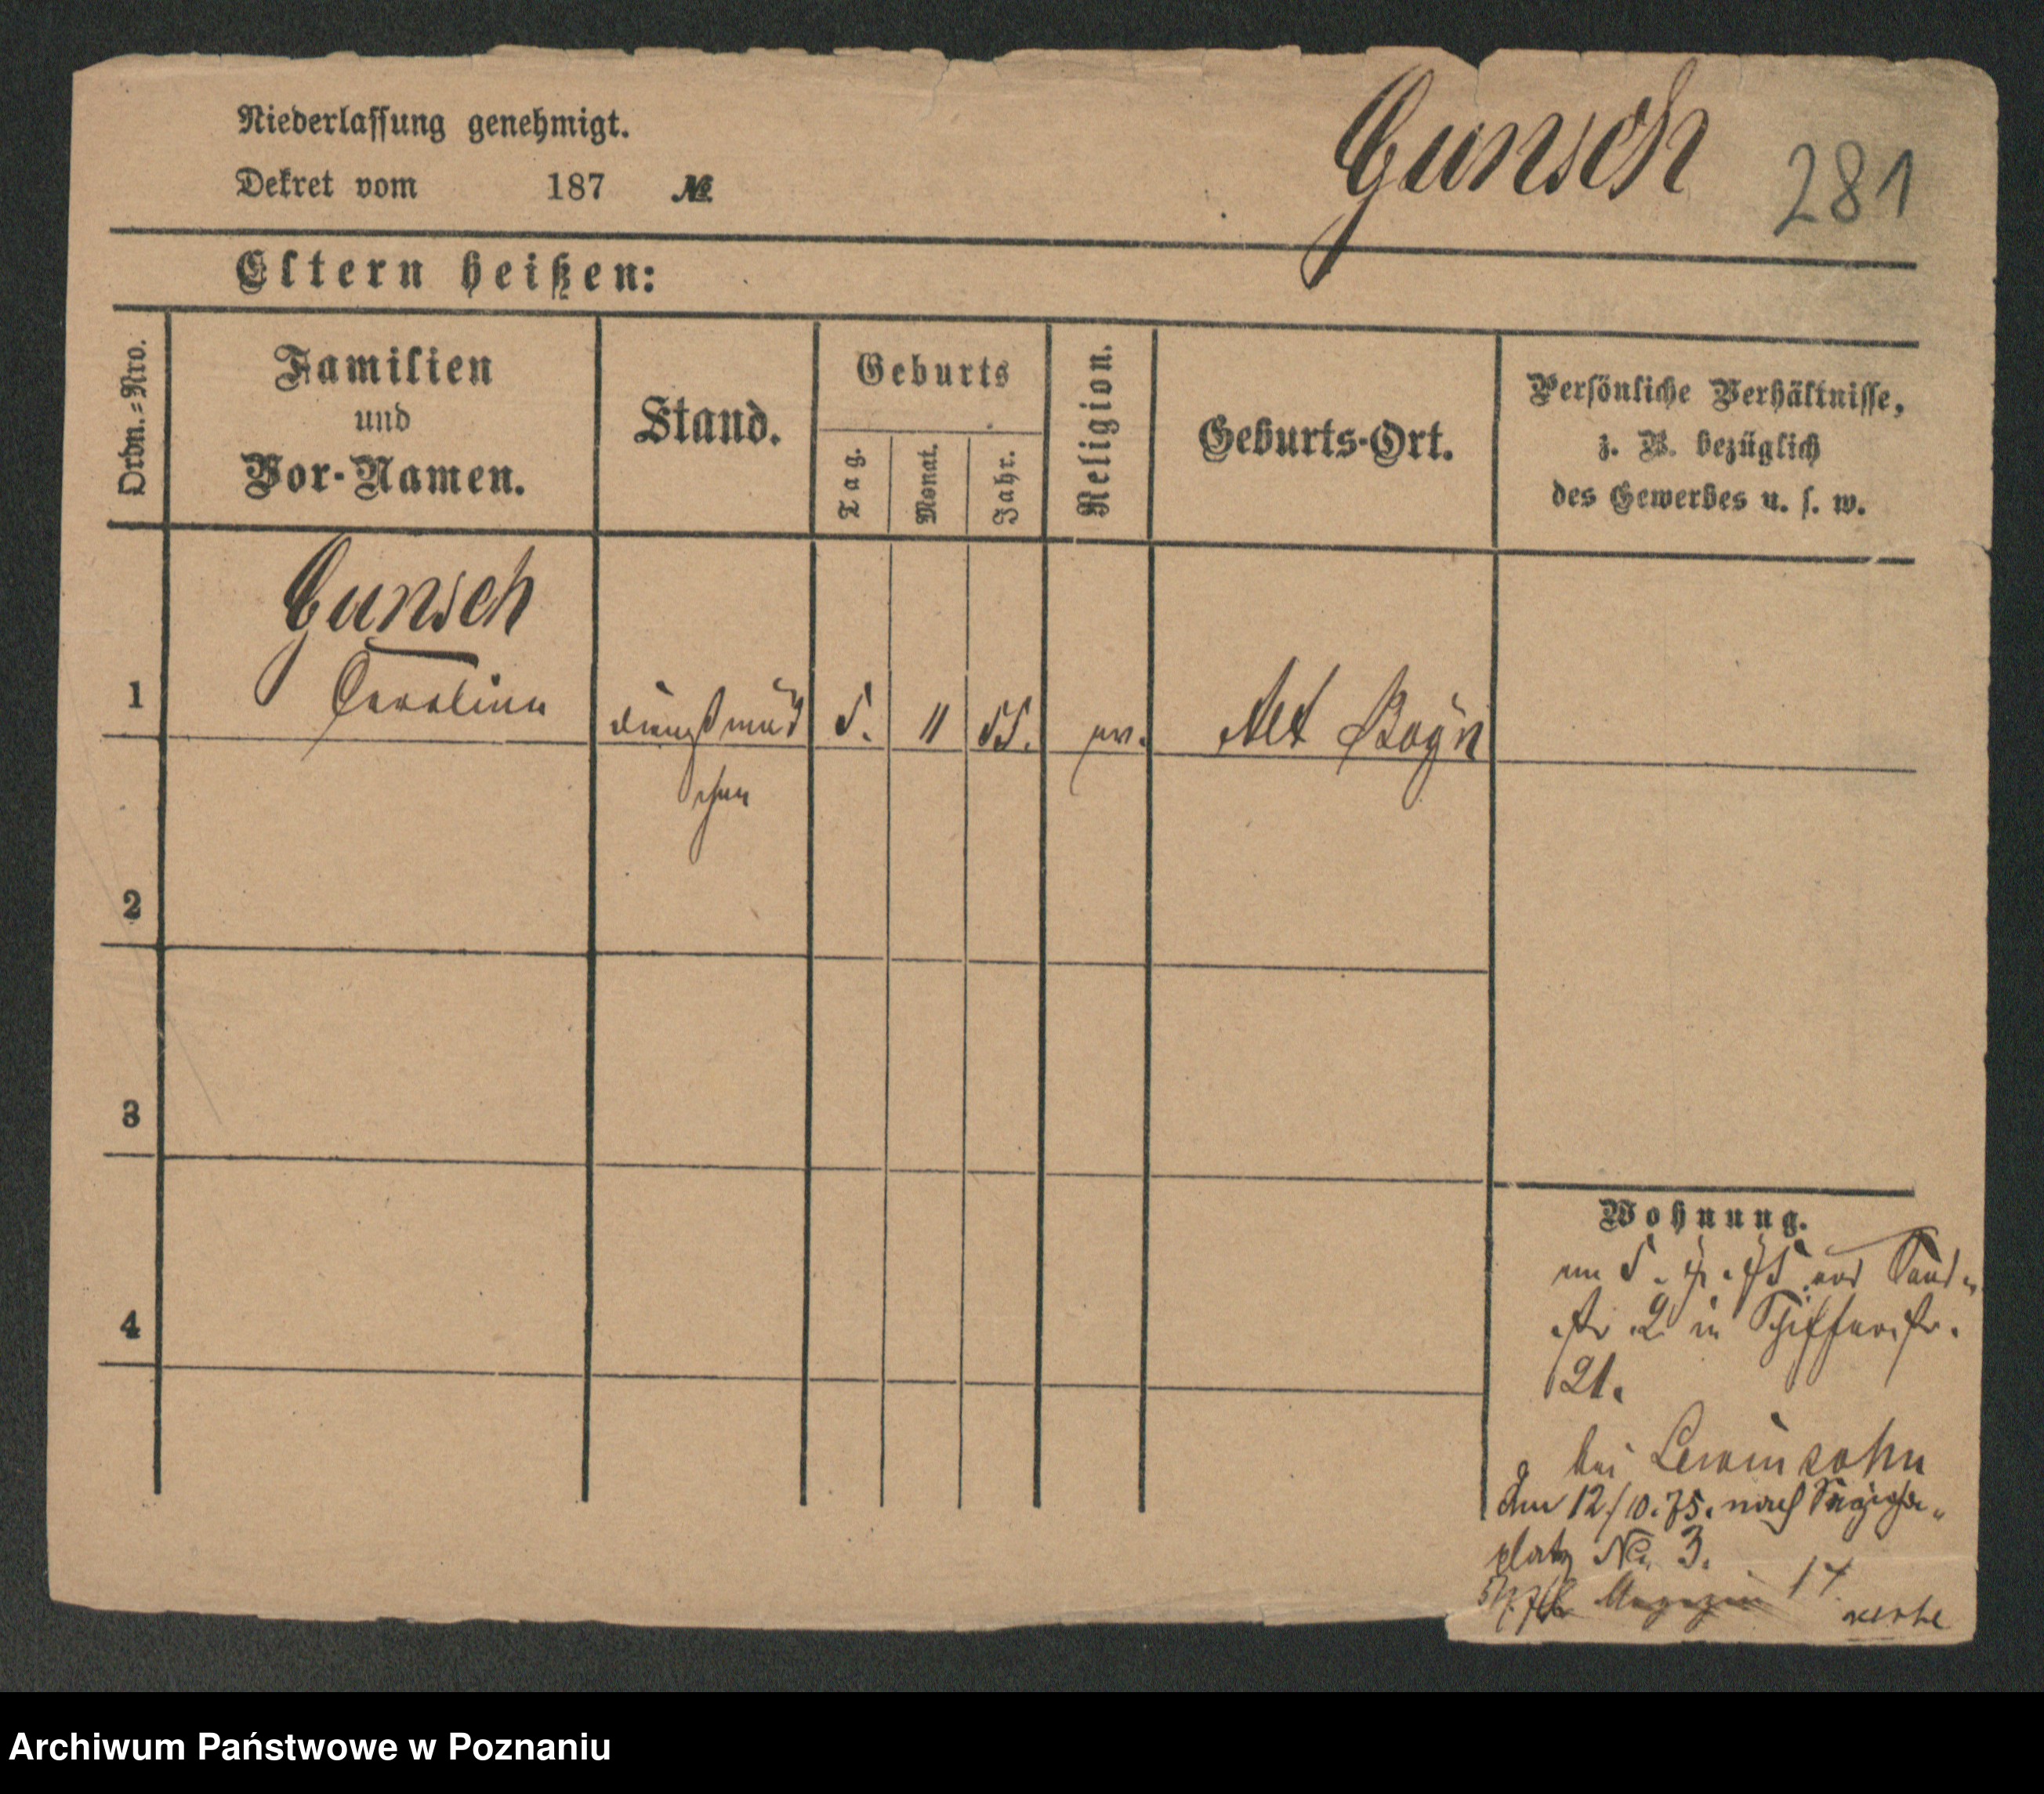 Niederlassung genehmigt.
Dekret vom 187 №
Gunsch 281
Eltern heißen:
Ordn.=Nro.
Familien
und
Vor-Namen.
Stand.
Geburts
Tag.
Monat.
Jahr.
Religion.
Geburts-Ort.
Persönliche Verhältnisse,
z. B. bezüglich
des Gewerbes u. s. w.
1
Gunsch
Caroline
Dienstmäd
chen
5.
11
55.
ev.
Alt
2
3
4
Wohnung.
am 5. 4. 75 von Sand-
str. 2 in Schifferstr.
21.
bei Lewinsohn
Am 12/10.75. nach
platz No. 3.
Magazin 17
Archiwum Państwowe w Poznaniu